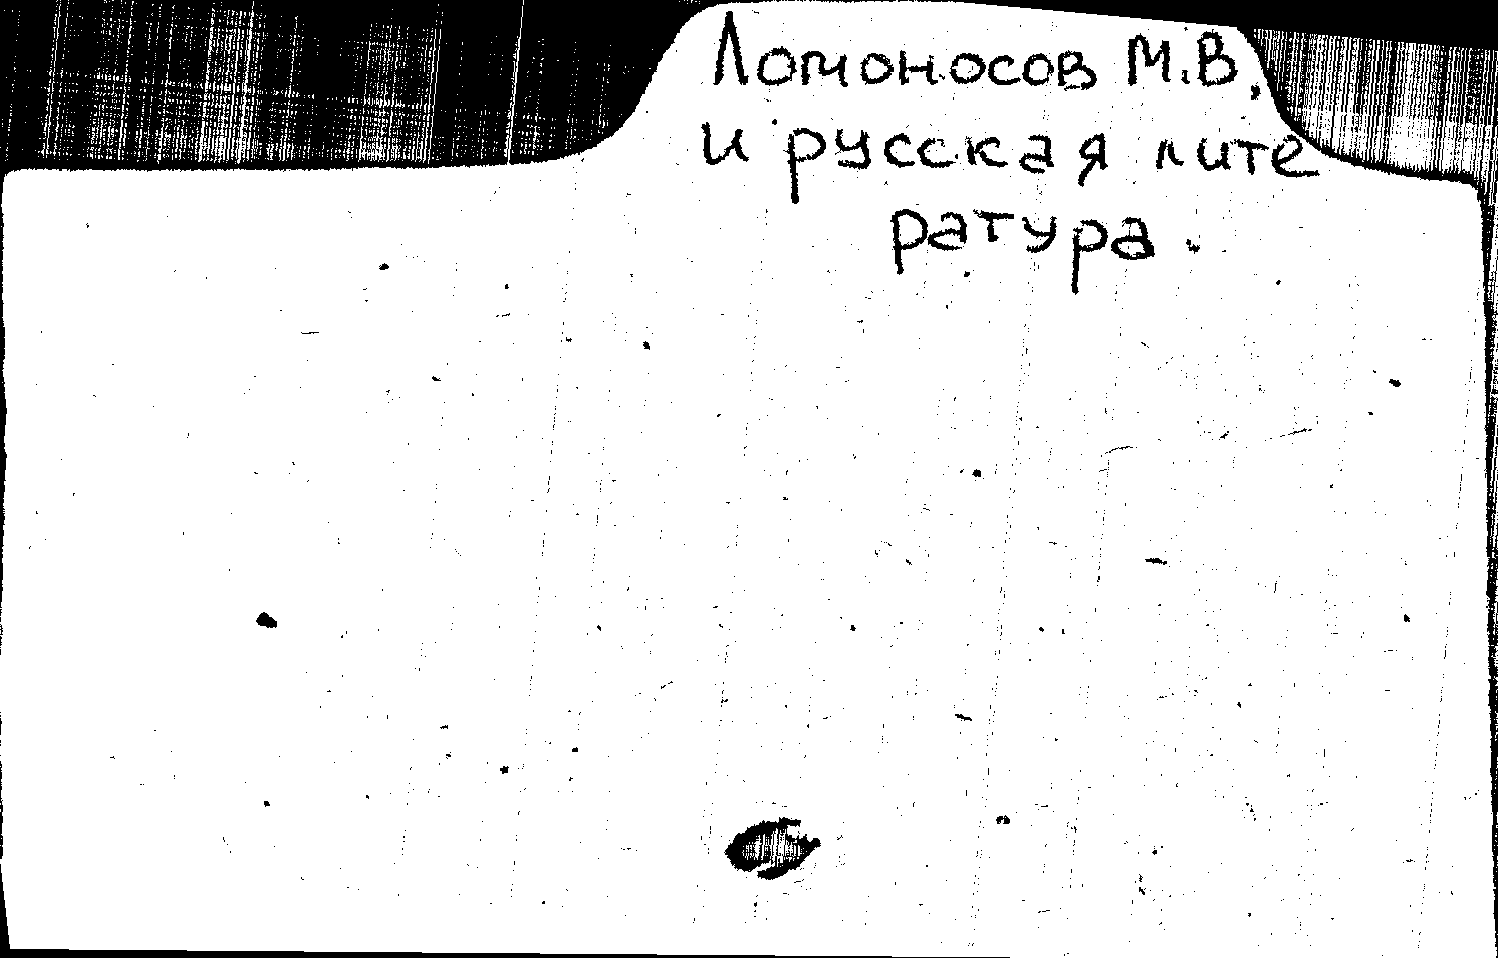 Ломоносов М.В.
и русская лите
ратура.